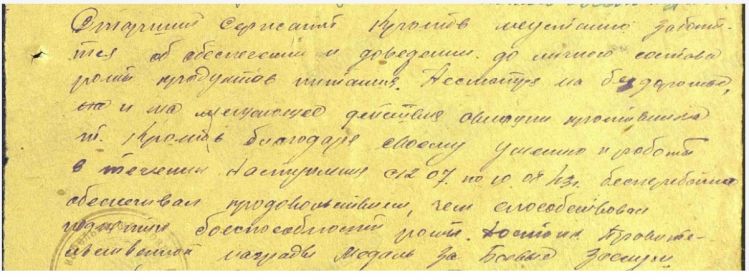 Старший сержант Кротов неустанно заботит-
тся об обеспечении и доведении до личного состава
роты продуктов питания. Несмотря на бездорожье,
и на мешающее действия авиации противника
т. Кротов благодаря своему умению и работе
в течении наступления с 12.07. по 10.08.43г. бесперебойно
обеспечивал продовольствием, чем способствовал
поднятию боеспособности роты. Достоин Правите-
льственной награды Медаль За Боевые Заслуги